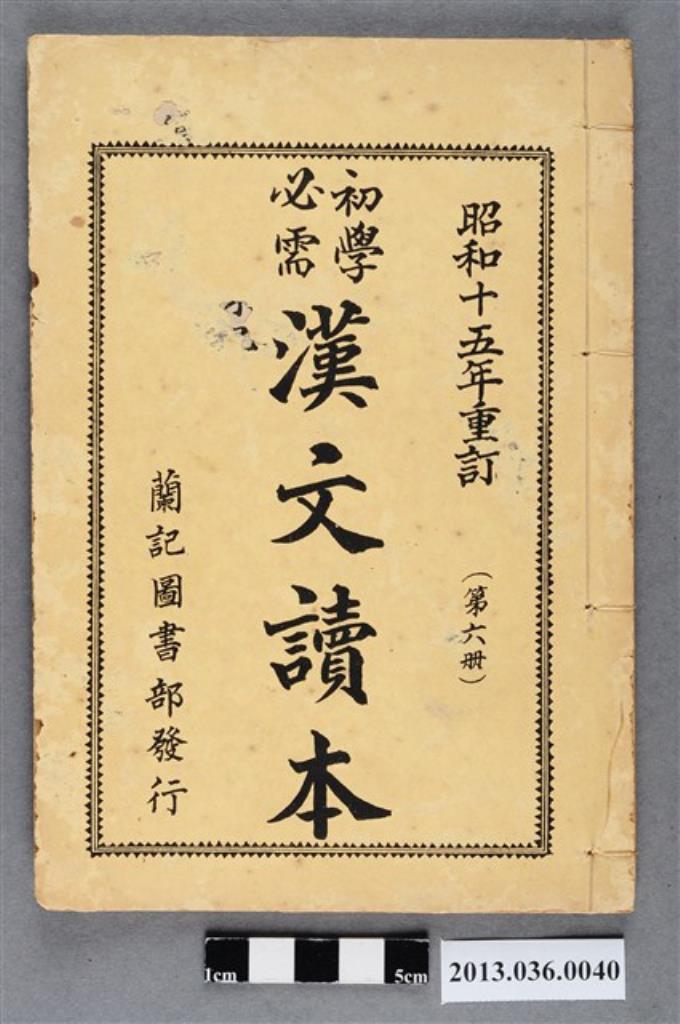 昭和十五年重訂
(第六册)
初學
必需
漢文讀本
蘭記圖書部發行
1cm
5cm
2013.036.0040